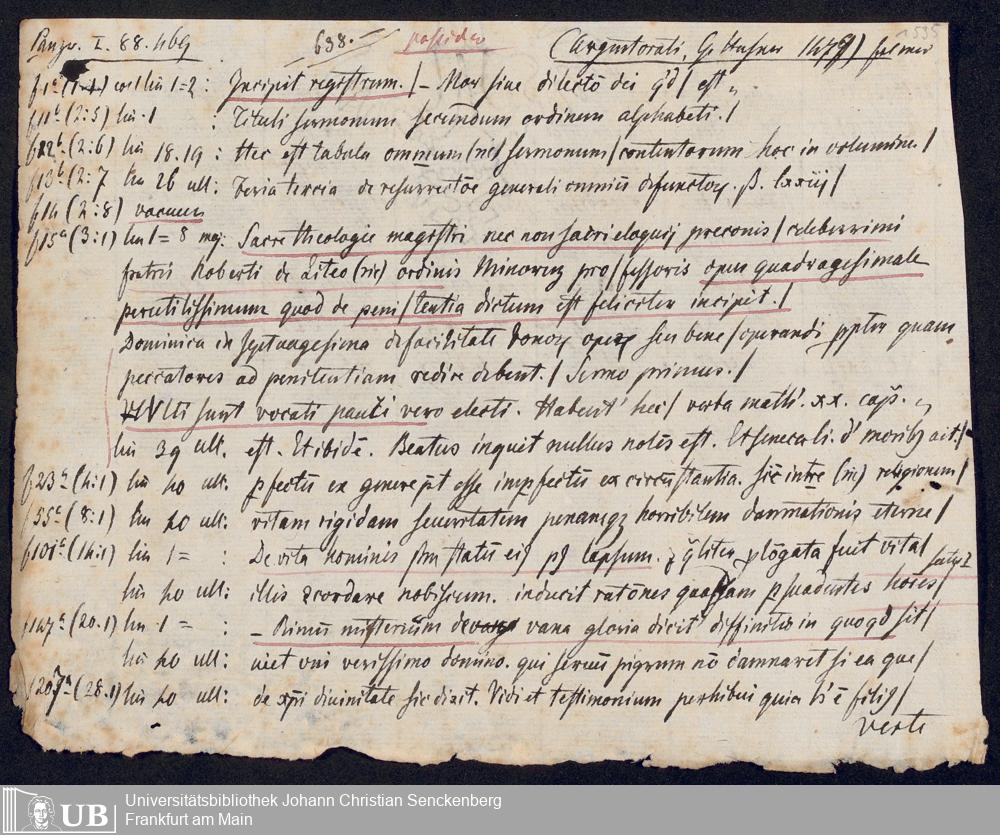 Panzr. I. 88. 469 638. – possideo (Argentorati, G. Husner 1479) fol min 1535
f 1a (1:1) col 1 lin 1=2 : Incipit registrum. / – Mor sine dilectõ dei q'd / est „
f 11b (2:5) lin. 1 : Tituli sermonum secundum ordinem alphabeti. /
f 12b. (2:6) lin 18.19 : Hec est tabula omnium (sic) sermonum / contentorum hoc in volumine. /
f 13b (2:7 lin 26 ult: Feria tercia de resurrectõe generali omniũ defunctoꝝ. ß. lxxiij /
f 14 (2:8) vacuum
f 15a (3:1) lin 1= 8 maj: Sacre theologie magistri nec non sacri eloquij preconis / celeberrimi
fratris Roberti de Liteo (sic) ordinis Minorum pro / fessoris opus quadragesimale
perutilissimum quod de peni / tentia dictum est feliciter incipit. /
Dominica in septuagesima de facilitate bonoꝝ operꝝ seu bene / operandi ꝓpter quam
peccatores ad penitentiam redire debent. / Sermo primus. /
MVlti sunt vocati pauci vero electi. Habent' hec / verba math'. xx. cap̃. „
lin 39 ult. est. Et ibidẽ. Beatus inquit nullus notẽs est. Et seneca li. d' moribꝫ ait. /
f 23a (4:1) lin 40 ult: ꝑfectũ ex genere p̃t esse imꝑfectũ ex circũstantia. Sic intre (sic) religionem /
f 55a (8:1) lin 40 ult: vitam rigidam seueritatem penamqꝫ horribilem damnationis eterne /
f 101a (14:1) lin 1= : De vita hominis ꝓm statũ eiꝰ pꝰ lapsum. ꝫ q̃liter ꝓlõgata fuit vita /
lin 40 ult: illis ꝯcordare nobiscum. inducit ratõnes quasdam ꝑsuadentes hoĩes /
f 147a (20.1) lin. 1 = : – Primũ misterium de vana gloria dicit' diffinitio in quo qd sit /
lin 40 ult: niet vni verissimo domino. qui seruũ pigrum nõ damnaret si ea que /
f 207a (28.1) lin 40 ult: de xp̃i diuinitate sic dicit. Vidi et testimonium perhibui quia h' ẽ filiꝰ /
verte
Universitätsbibliothek Johann Christian Senckenberg
Frankfurt am Main
UB